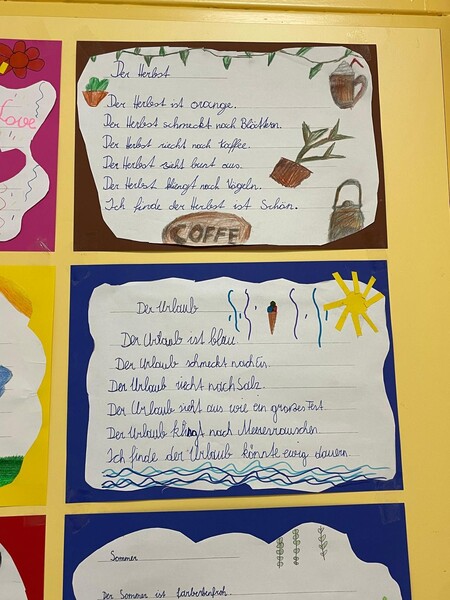 Love
Der Herbst
Der Herbst ist orange.
Der Herbst schmeckt nach Blättern.
Der Herbst riecht nach Kaffee.
Der Herbst sieht bunt aus.
Der Herbst klingt nach Vögeln.
Ich finde der Herbst ist Schön.
COFFE
Der Urlaub
Der Urlaub ist blau.
Der Urlaub schmeckt nach Eis.
Der Urlaub riecht nach Salz.
Der Urlaub sieht aus wie ein großes Fest.
Der Urlaub klingt nach Meeresrauschen.
Ich finde der Urlaub könnte ewig dauern.
Sommer
Der Sommer ist farbenfroh.